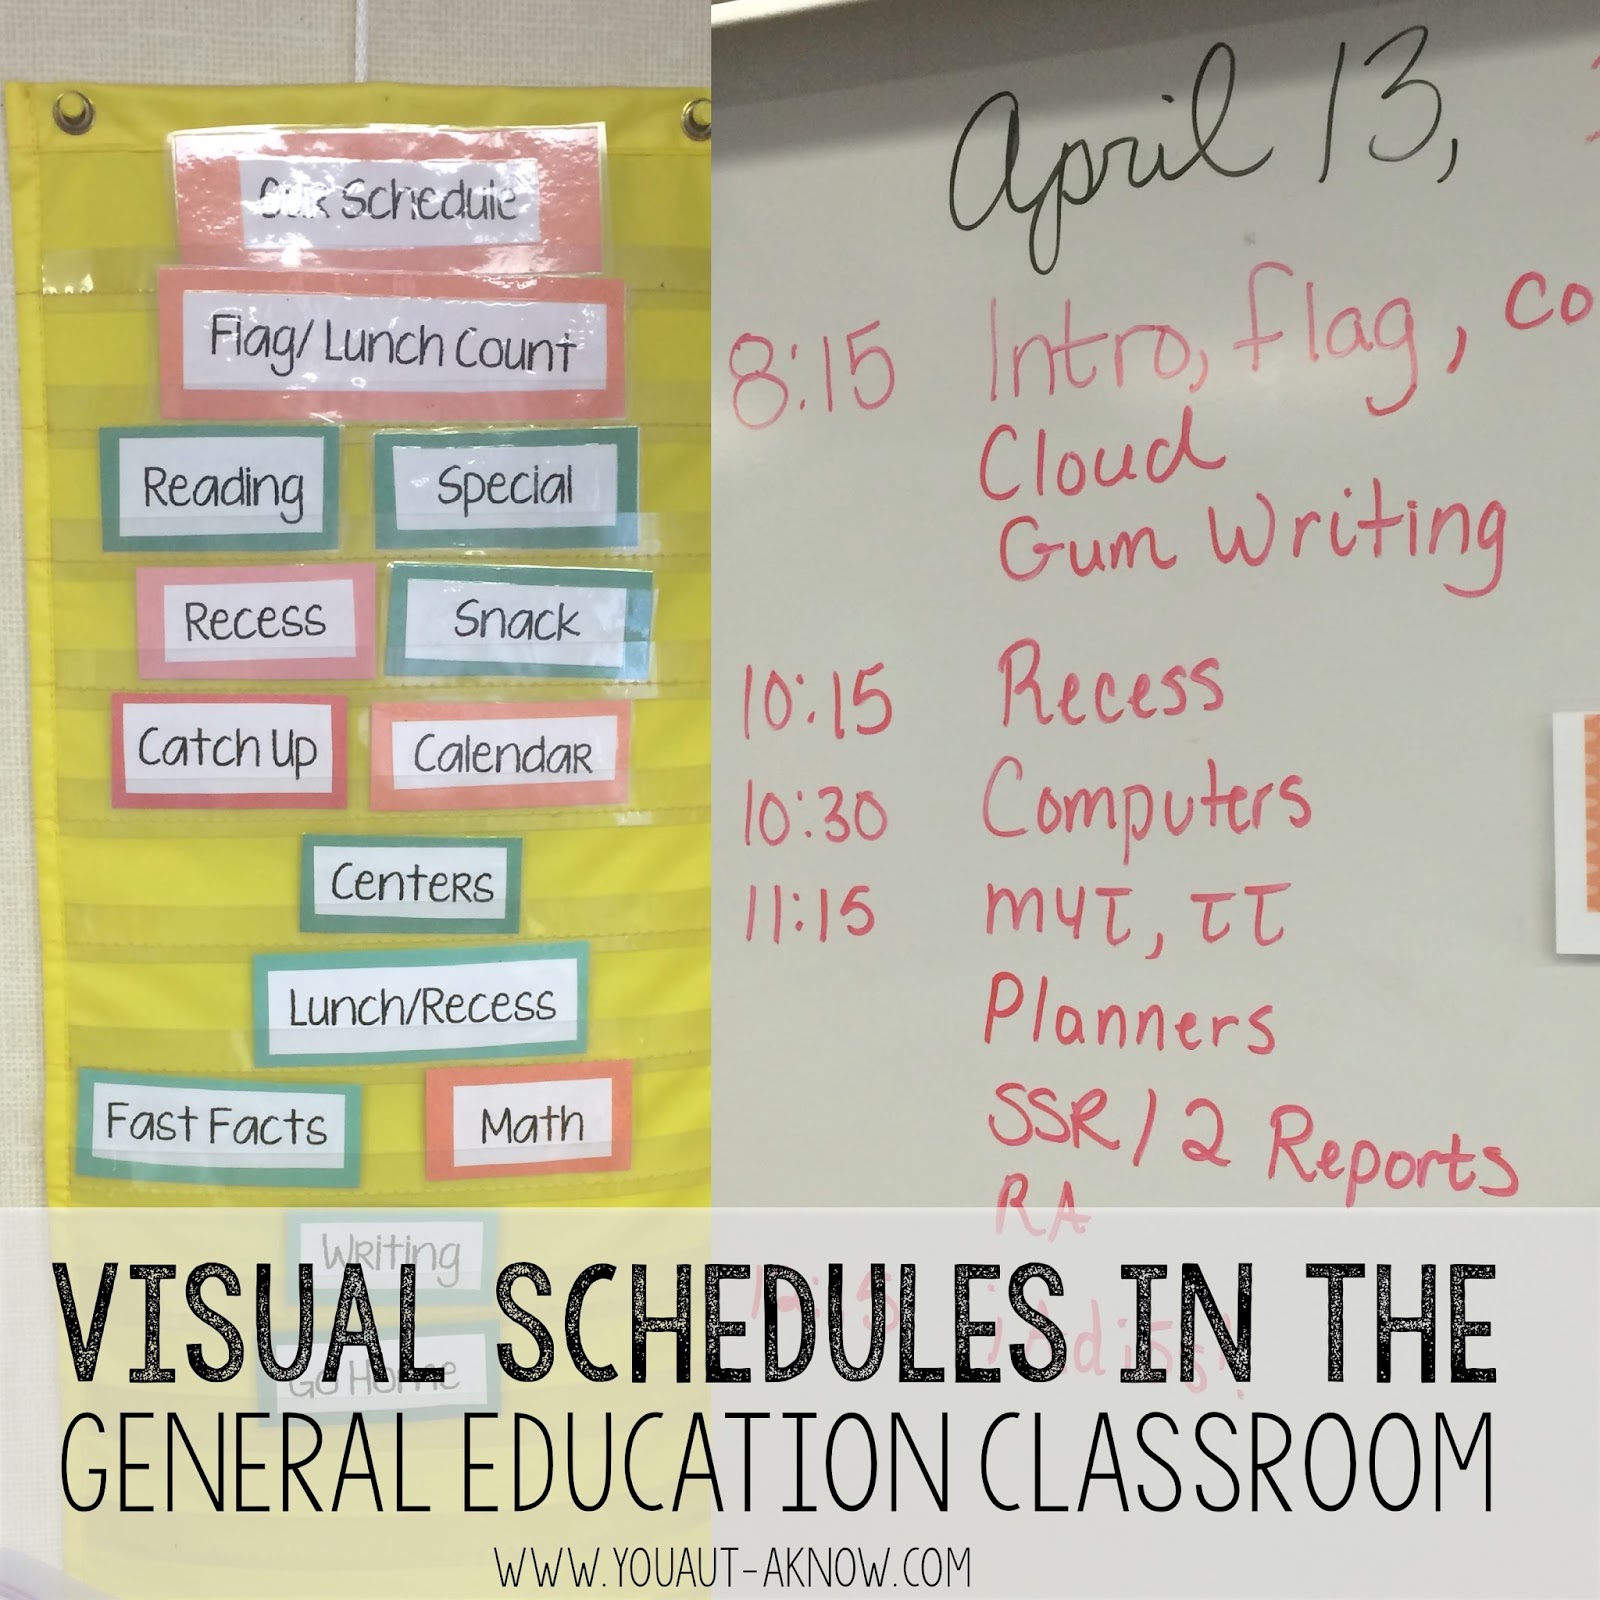 Our Schedule
Flag/Lunch Count
Reading Special
Recess Snack
Catch Up Calendar
Centers
Lunch/Recess
Fast Facts Math
Writing
Go Home
April 13,
8:15 Intro, flag, co
Cloud
Gum Writing
10:15 Recess
10:30 Computers
11:15
Planners
SSR/2 Reports
RA
VISUAL SCHEDULES IN THE
GENERAL EDUCATION CLASSROOM
WWW.YOUAUT-AKNOW.COM